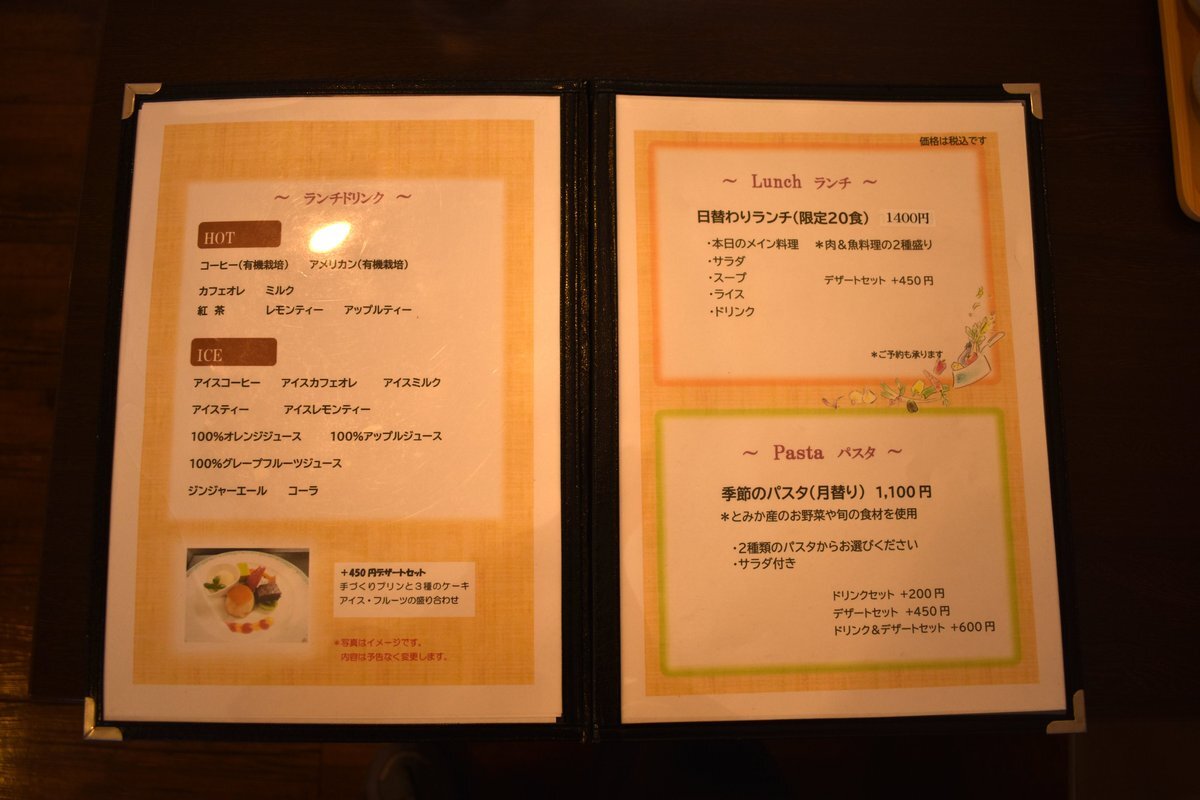 ～ ランチドリンク ～
HOT
コーヒー(有機栽培) アメリカン(有機栽培)
カフェオレ ミルク
紅 茶 レモンティー アップルティー
ICE
アイスコーヒー アイスカフェオレ アイスミルク
アイスティー アイスレモンティー
100%オレンジジュース 100%アップルジュース
100%グレープフルーツジュース
ジンジャーエール コーラ
＋450円デザートセット
手づくりプリンと３種のケーキ
アイス・フルーツの盛り合わせ
＊写真はイメージです。
内容は予告なく変更します。
価格は税込です
～ Lunch ランチ ～
日替わりランチ(限定20食) 1400円
・本日のメイン料理 ＊肉＆魚料理の２種盛り
・サラダ
・スープ デザートセット +450円
・ライス
・ドリンク
＊ご予約も承ります
～ Pasta パスタ ～
季節のパスタ(月替り) 1,100円
＊とみか産のお野菜や旬の食材を使用
・２種類のパスタからお選びください
・サラダ付き
ドリンクセット +200円
デザートセット +450円
ドリンク＆デザートセット +600円